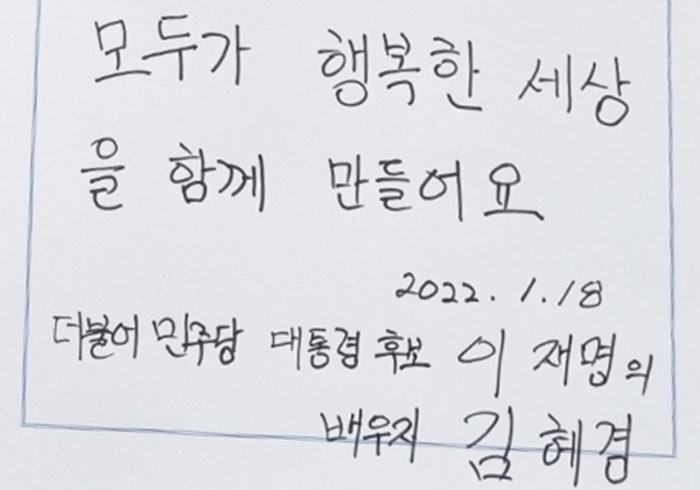 모두가 행복한 세상
을 함께 만들어요
2022. 1. 18
더불어 민주당 대통령 후보 이 재명의
배우자 김 혜경